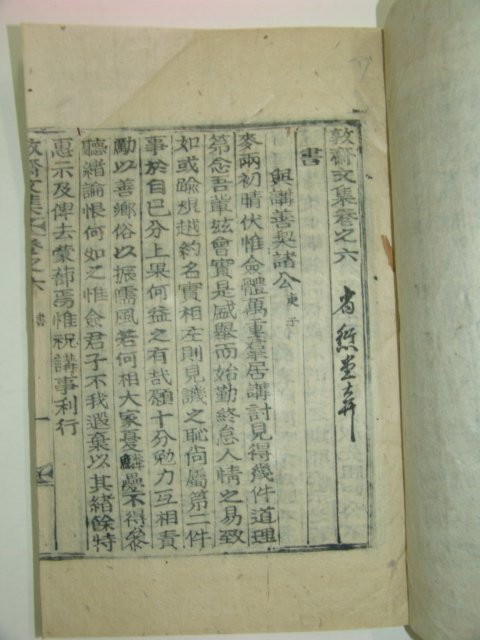 敦齋文集卷之六
書
與講善契諸公 庚子
麥兩初晴伏惟僉體萬重羣居講討見得幾件道理
第念吾輩玆會實是盛擧而始勤終怠人情之易致
如或踰規越約名實相左則見譏之恥尙屬第二件
事於自己分上果何益之有哉願十分勉力互相責
勵以善鄕俗以振儒風若何相大家憂疊不得參
聽緖論恨何如之惟僉君子不我遐棄以其緖餘特
惠示及俾去蒙蔀焉惟祝講事利行
敦齋文集 卷之六 書 一